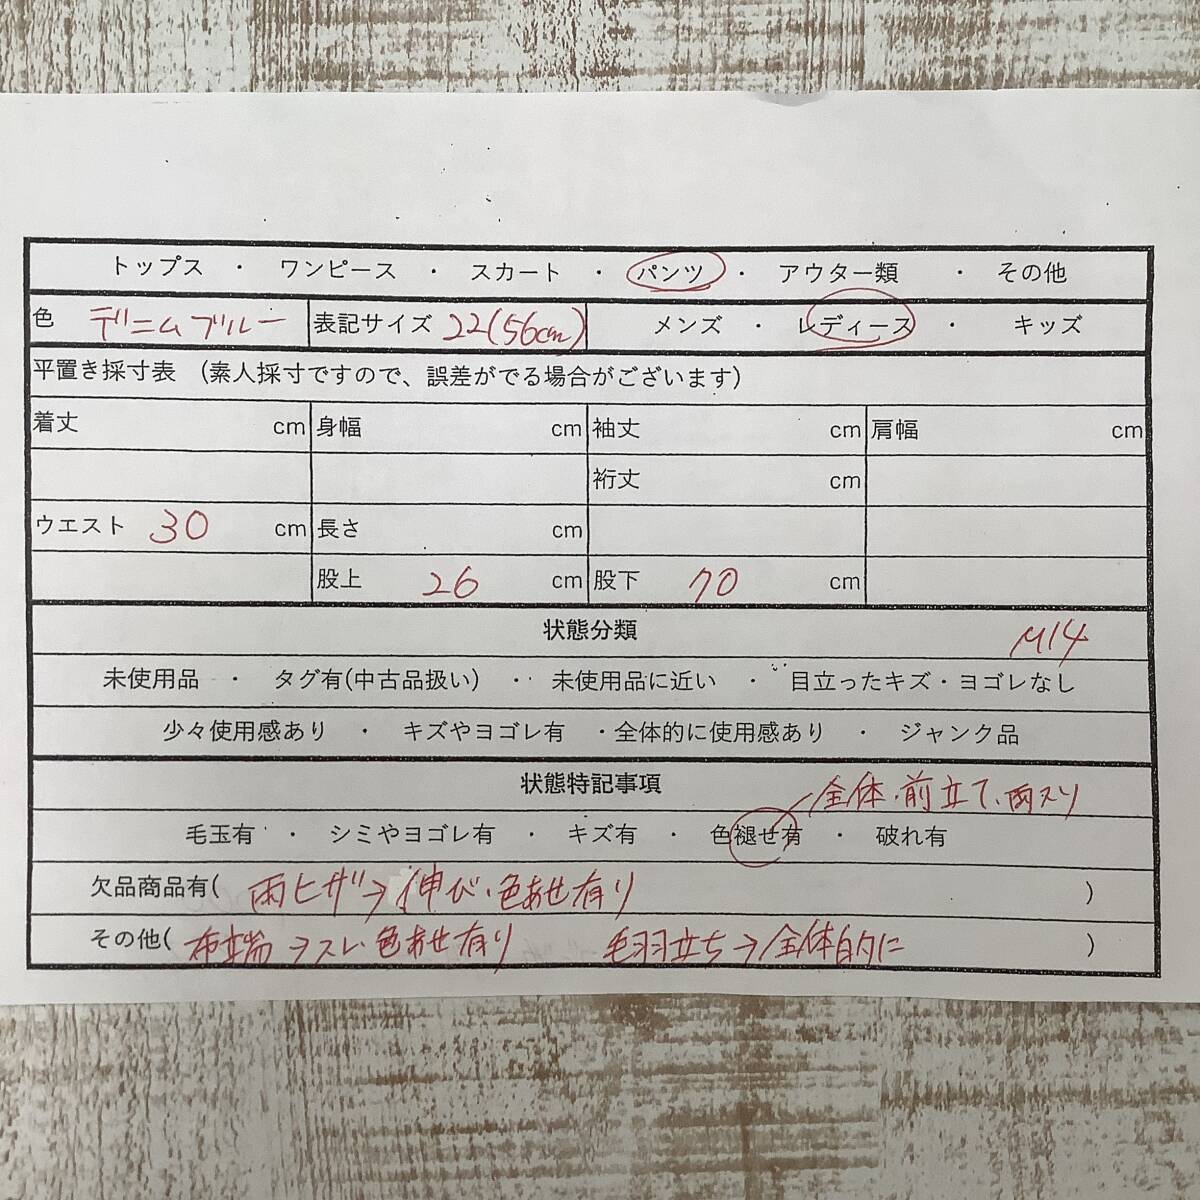 トップス ・ ワンピース ・ スカート ・ パンツ ・ アウター類 ・ その他
色 デニムブルー 表記サイズ 22(56cm) メンズ ・ レディース ・ キッズ
平置き採寸表 (素人採寸ですので、誤差がでる場合がございます)
着丈 cm 身幅 cm 袖丈 cm 肩幅 cm
裄丈 cm
ウエスト 30 cm 長さ cm
股上 26 cm 股下 70 cm
状態分類 M14
未使用品 ・ タグ有(中古品扱い) ・・ 未使用品に近い ・ 目立ったキズ・ヨゴレなし
少々使用感あり ・ キズやヨゴレ有 ・全体的に使用感あり ・ ジャンク品
状態特記事項 全体・前立て、両入り
毛玉有 ・ シミやヨゴレ有 ・ キズ有 ・ 色褪せ有 ・ 破れ有
欠品商品有( 両ヒザ→伸び、色あせ有り )
その他( 布端→スレ、色あせ有り 毛羽立ち→全体的に )